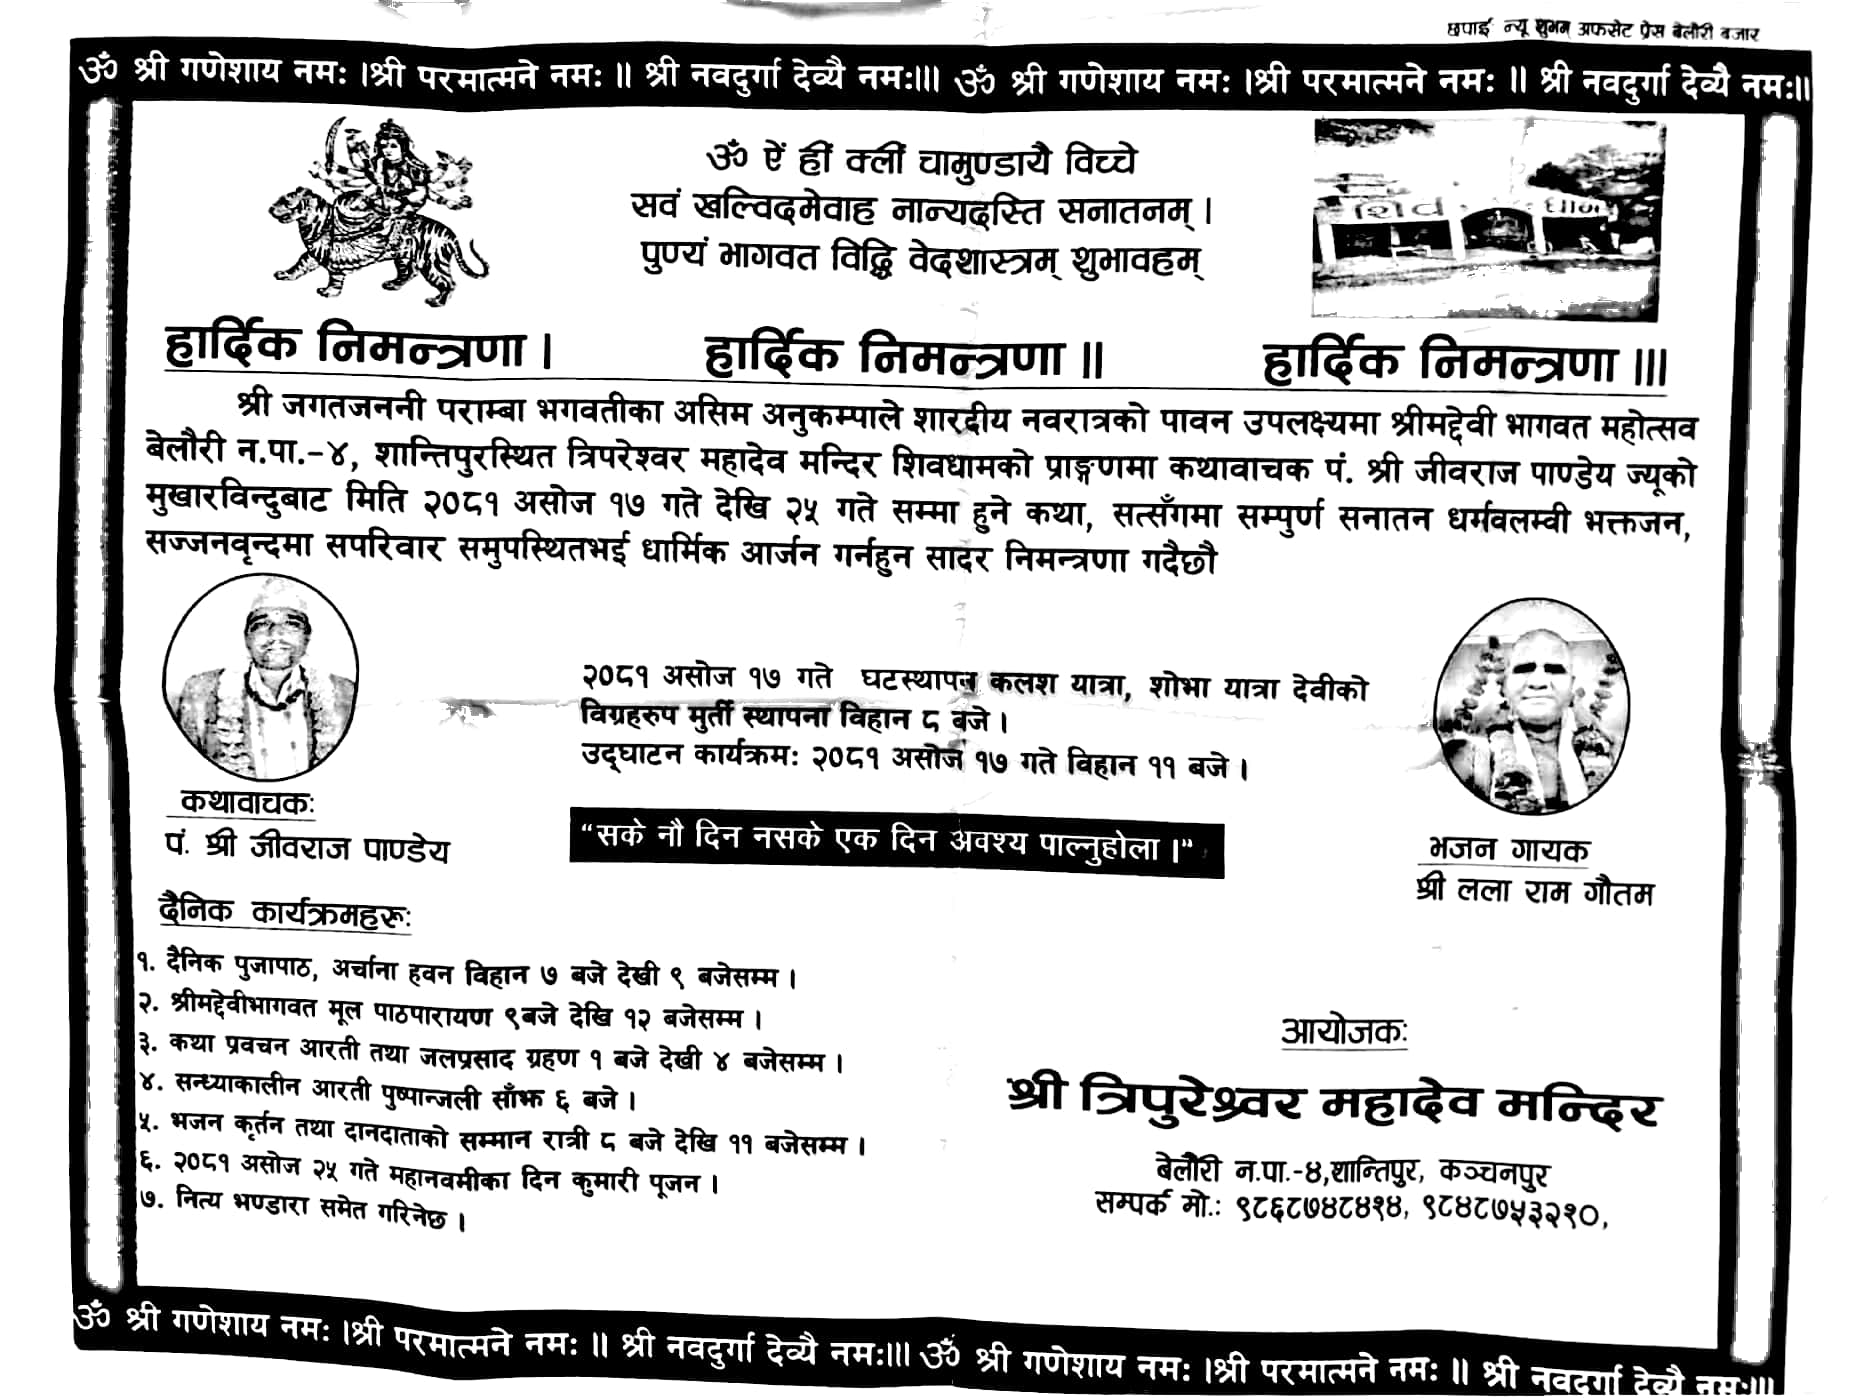 छपाई न्यू शुभम् अफसेट प्रेस बेलौरी बजार
ॐ श्री गणेशाय नमः ।श्री परमात्मने नमः ॥ श्री नवदुर्गा देव्यै नमः॥। ॐ श्री गणेशाय नमः ।श्री परमात्मने नमः ॥ श्री नवदुर्गा देव्यै नमः॥
ॐ ऐं हीं क्लीं चामुण्डायै विच्चे
सवं खल्विदमेवाह नान्यदस्ति सनातनम् ।
पुण्यं भागवत विद्धि वेदशास्त्रम् शुभावहम्
शिव धाम
हार्दिक निमन्त्रणा । हार्दिक निमन्त्रणा ॥ हार्दिक निमन्त्रणा ॥।
श्री जगतजननी पराम्बा भगवतीका असिम अनुकम्पाले शारदीय नवरात्रको पावन उपलक्ष्यमा श्रीमद्देवी भागवत महोत्सव
बेलौरी न.पा.-४, शान्तिपुरस्थित त्रिपरेश्वर महादेव मन्दिर शिवधामको प्राङ्गणमा कथावाचक पं. श्री जीवराज पाण्डेय ज्यूको
मुखारविन्दुबाट मिति २०८१ असोज १७ गते देखि २५ गते सम्मा हुने कथा, सत्सँगमा सम्पुर्ण सनातन धर्मवलम्वी भक्तजन,
सज्जनवृन्दमा सपरिवार समुपस्थितभई धार्मिक आर्जन गर्नहुन सादर निमन्त्रणा गदैछौ
२०८१ असोज १७ गते घटस्थापन कलश यात्रा, शोभा यात्रा देवीको
विग्रहरुप मुर्ती स्थापना विहान ८ बजे ।
उद्घाटन कार्यक्रम: २०८१ असोज १७ गते विहान ११ बजे ।
कथावाचक:
पं. श्री जीवराज पाण्डेय
“सके नौ दिन नसके एक दिन अवश्य पाल्नुहोला ।”
भजन गायक
श्री लला राम गौतम
दैनिक कार्यक्रमहरू:
१. दैनिक पुजापाठ, अर्चाना हवन विहान ७ बजे देखी ९ बजेसम्म ।
२. श्रीमद्देवीभागवत मूल पाठपारायण ९बजे देखि १२ बजेसम्म ।
३. कथा प्रवचन आरती तथा जलप्रसाद ग्रहण १ बजे देखी ४ बजेसम्म ।
४. सन्ध्याकालीन आरती पुष्पान्जली साँझ ६ बजे ।
५. भजन कृर्तन तथा दानदाताको सम्मान रात्री ८ बजे देखि ११ बजेसम्म ।
६. २०८१ असोज २५ गते महानवमीका दिन कुमारी पूजन ।
७. नित्य भण्डारा समेत गरिनेछ ।
आयोजक:
श्री त्रिपुरेश्वर महादेव मन्दिर
बेलौरी न.पा.-४,शान्तिपुर, कञ्चनपुर
सम्पर्क मो.: ९८६८७४८४१४, ९८४८७५३२१०,
ॐ श्री गणेशाय नमः ।श्री परमात्मने नमः ॥ श्री नवदुर्गा देव्यै नमः॥। ॐ श्री गणेशाय नमः ।श्री परमात्मने नमः ॥ श्री नवदुर्गा देव्यै नमः॥।